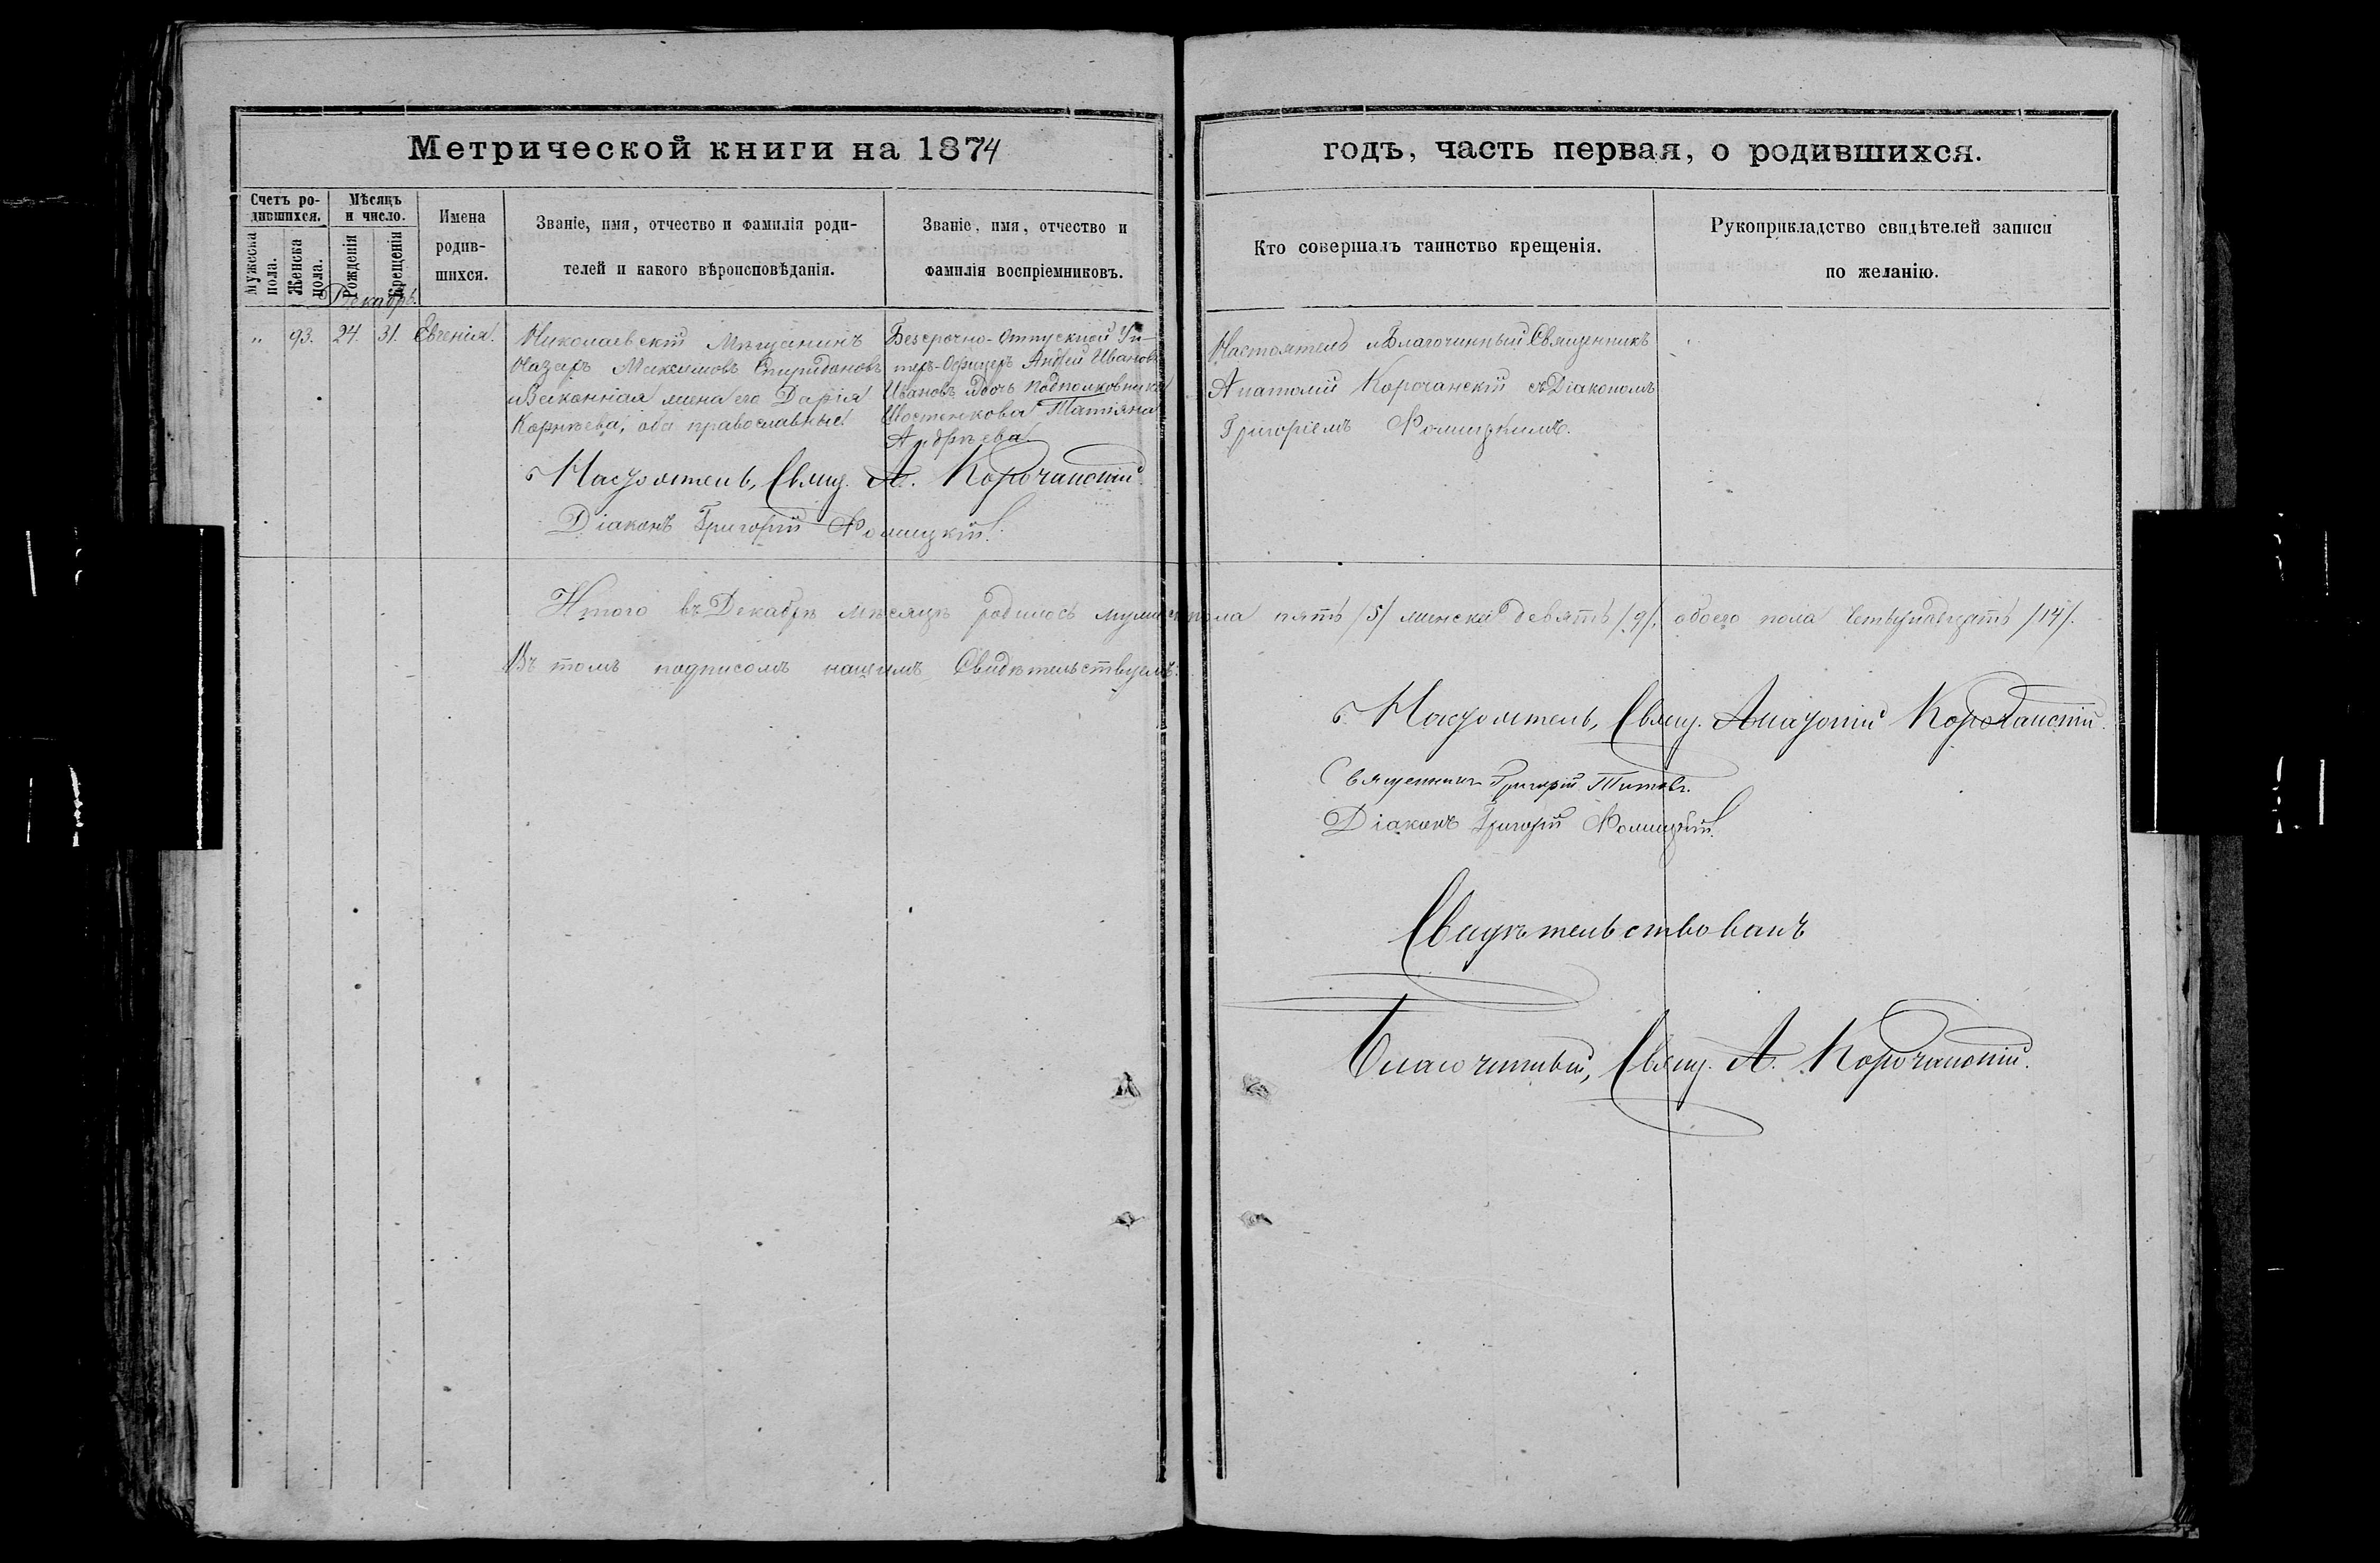 Метрической книги на 1874
годъ, часть первая, о родившихся.
Счетъ родившихся.
Мужеска пола.
Женска пола.
Мѣсяцъ и число.
Рожденія
Крещенія
Имена родив-
шихся.
Званіе, имя, отчество и фамилія роди-
телей и какого вѣроисповѣданія.
Званіе, имя, отчество и
фамилія воспріемниковъ.
Кто совершалъ таинство крещенія.
Рукоприкладство свидѣтелей записи
по желанію.
Декабрь.
" 93. 24. 31. Евгенія.
Николаевскій Мѣщанинъ
Назаръ Максимовъ Спиридоновъ
и Законная жена его Дарія
Корнѣева, оба православные
Безсрочно-Отпускной Ун-
теръ-Офицеръ Андрей Ивановъ
Ивановъ и дочь Подполковника
Татіяна
Андрѣева.
Настоятель и Благочинный Священникъ
Анатолій Корочанскій съ Діакономъ
Григоріемъ
Настоятель, Свящ. А. Корочанскій
Діаконъ Григорій
Итого въ Декабрѣ мѣсяцѣ родилось мужеск пола пять /5/ женска девять /9/, обоего пола четырнадцать /14/.
Въ томъ подписомъ нашимъ Свидѣтельствуемъ:
Настоятель, Свящ. Анатолій Корочанскій.
Священникъ Григорій Титовъ.
Діаконъ Григорій
Свидѣтельствовалъ
Благочинный, Свящ. А. Корочанскій.